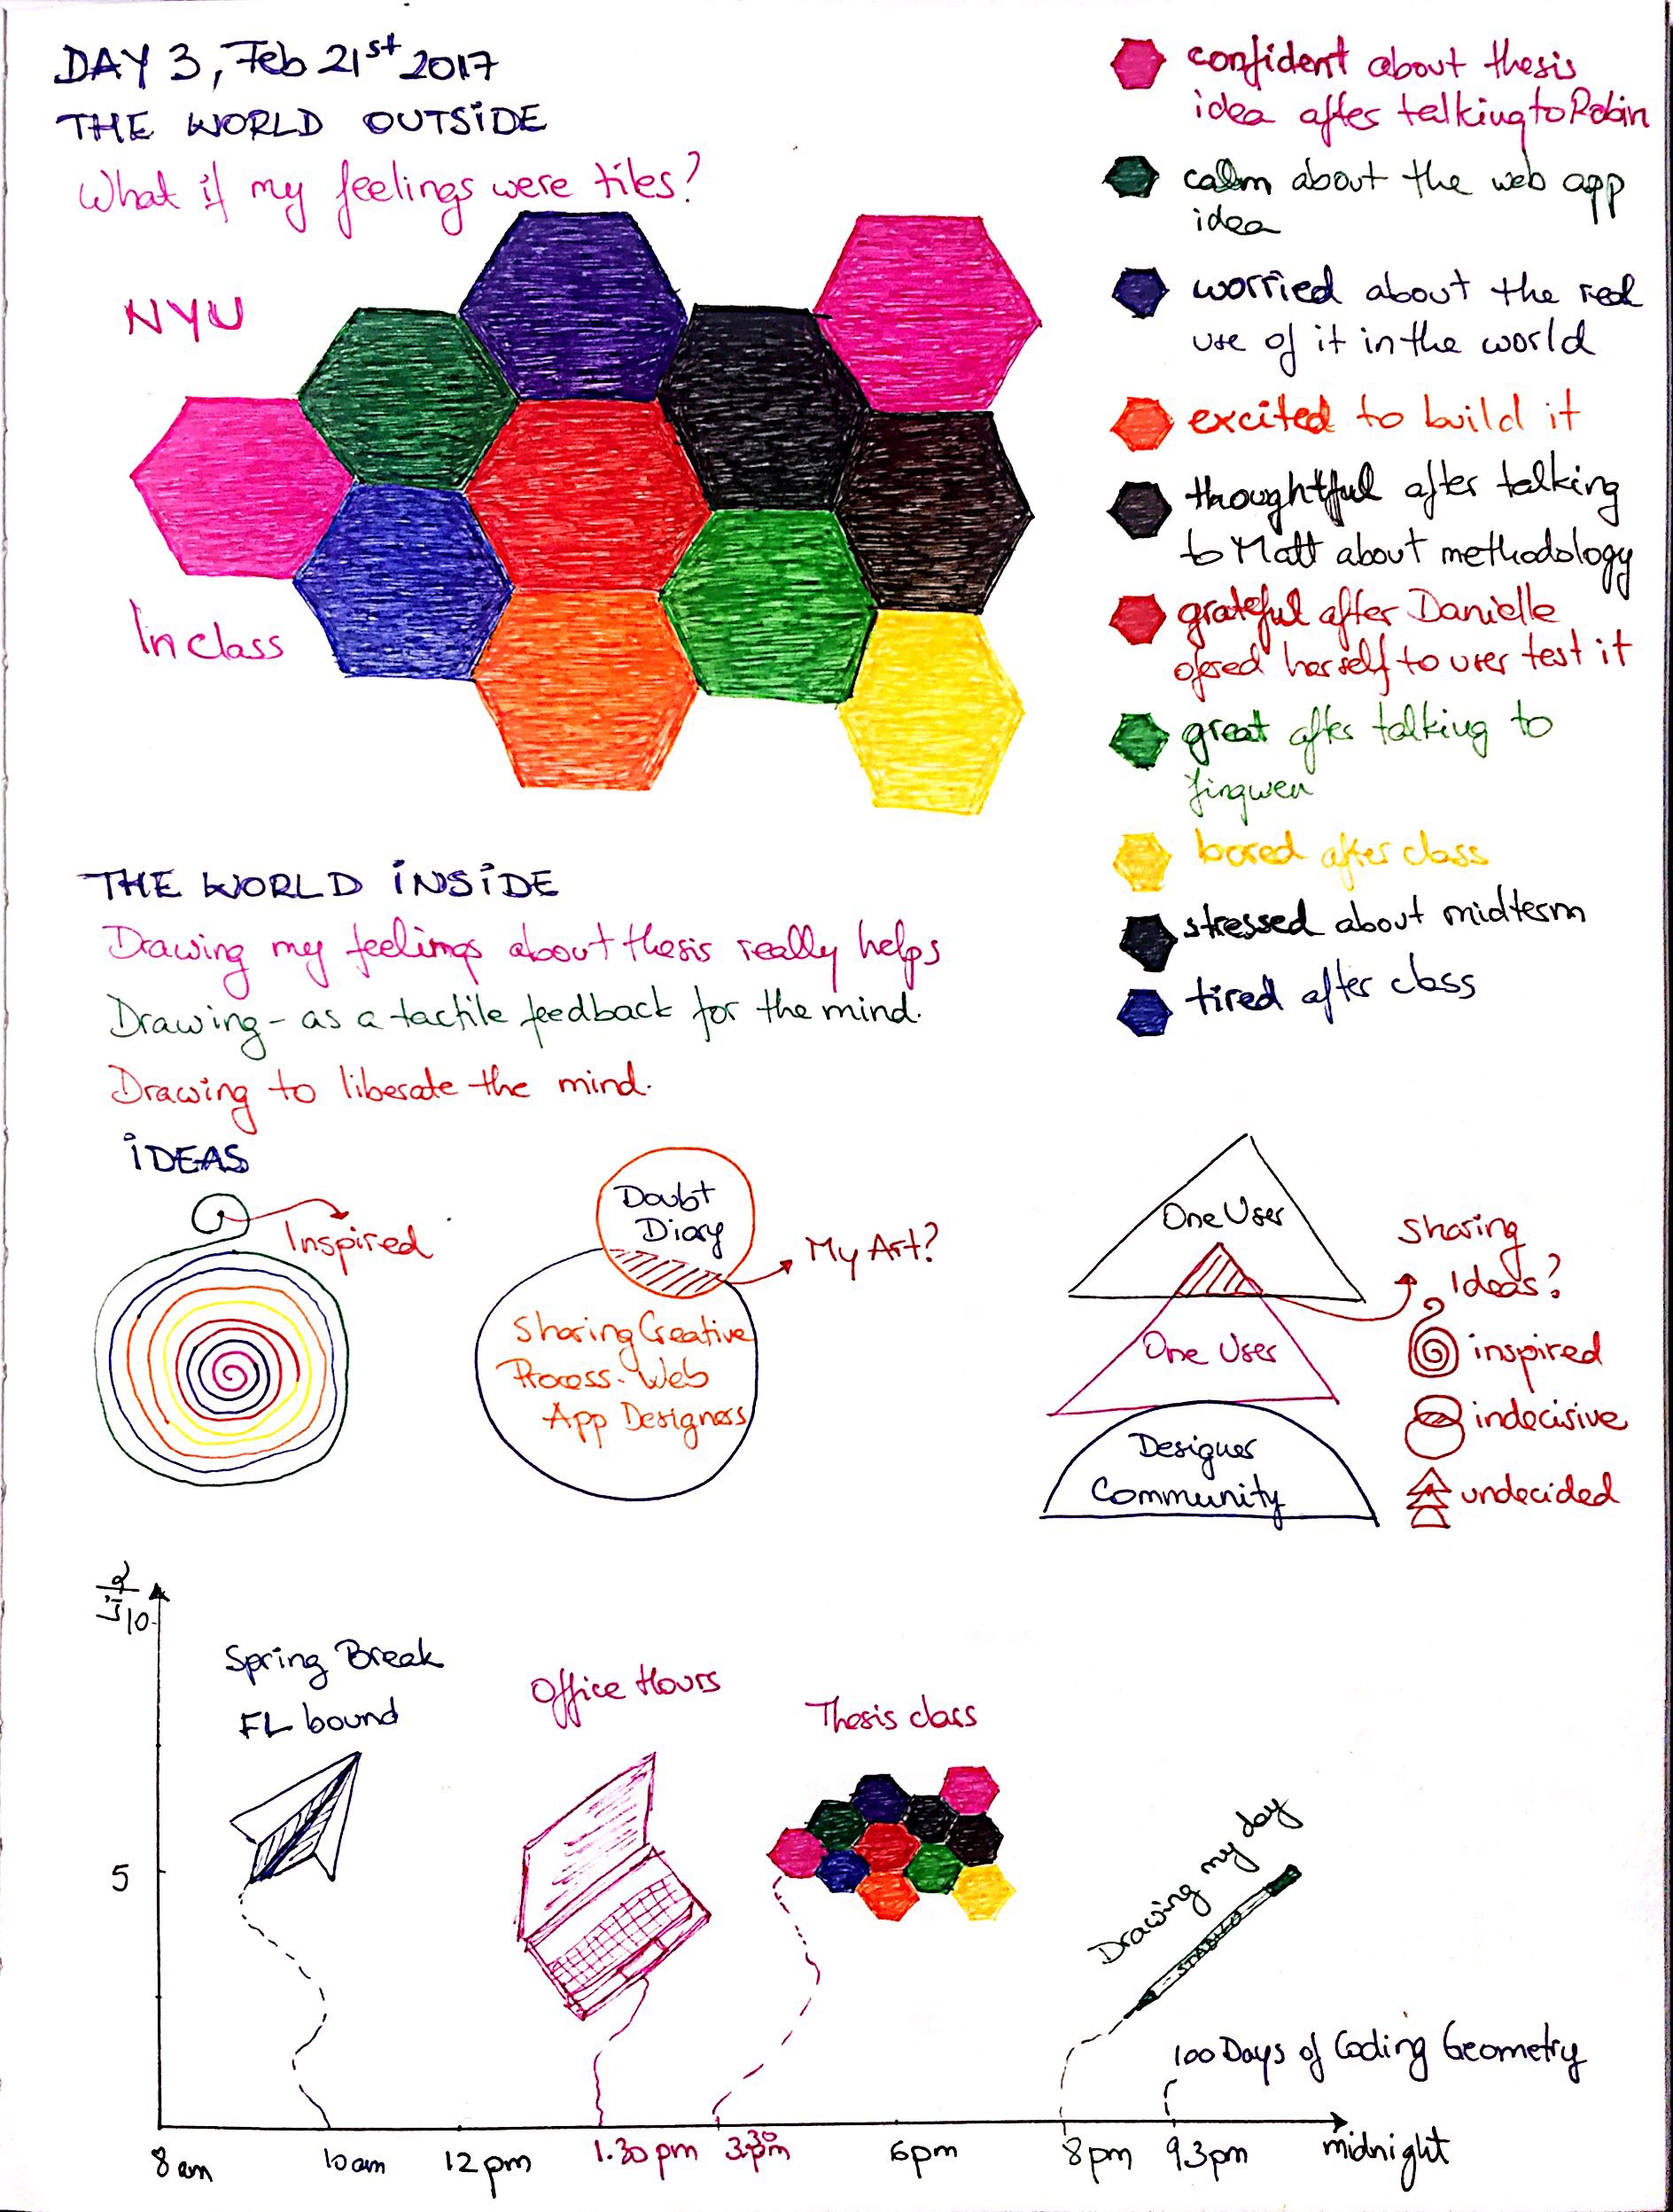 DAY 3, Feb 21st 2017
THE WORLD OUTSIDE
What if my feelings were tiles?
NYU
In class
confident about thesis
idea after talking to Robin
calm about the web app
idea
worried about the real
use of it in the world
excited to build it
thoughtful after talking
to Matt about methodology
grateful after Danielle
ofered herself to user test it
great after talking to
Jingwen
bored after class
stressed about midterm
tired after class
THE WORLD INSIDE
Drawing my feelings about thesis really helps
Drawing - as a tactile feedback for the mind.
Drawing to liberate the mind.
IDEAS
Inspired
Doubt
Diary
My Art?
Sharing Creative
Process. Web
App Designers
One User
One User
Designer
Community
Sharing
Ideas?
inspired
indecisive
undecided
10
5
Spring Break
FL bound
Office Hours
Thesis class
Drawing my day
STABILO
100 Days of Coding Geometry
8am
10am
12pm
1.30pm
3.30pm
6pm
8pm
93pm
midnight